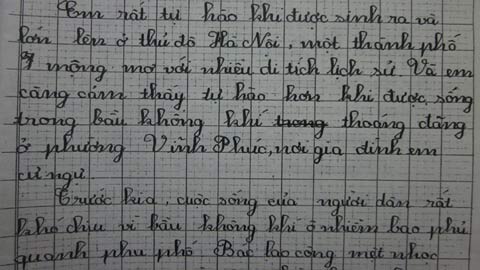 Em rất tự hào khi được sinh ra và
lớn lên ở thủ đô Hà Nội, một thành phố
mộng mơ với nhiều di tích lịch sử. Và em
càng cảm thấy tự hào hơn khi được sống
trong bầu không khí trong thoáng đãng
ở phường Vĩnh Phúc, nơi gia đình em
cư ngụ.
Trước kia, cuộc sống của người dân rất
khó chịu vì bầu không khí ô nhiễm bao phủ
quanh khu phố. Bác lao công mệt nhọc